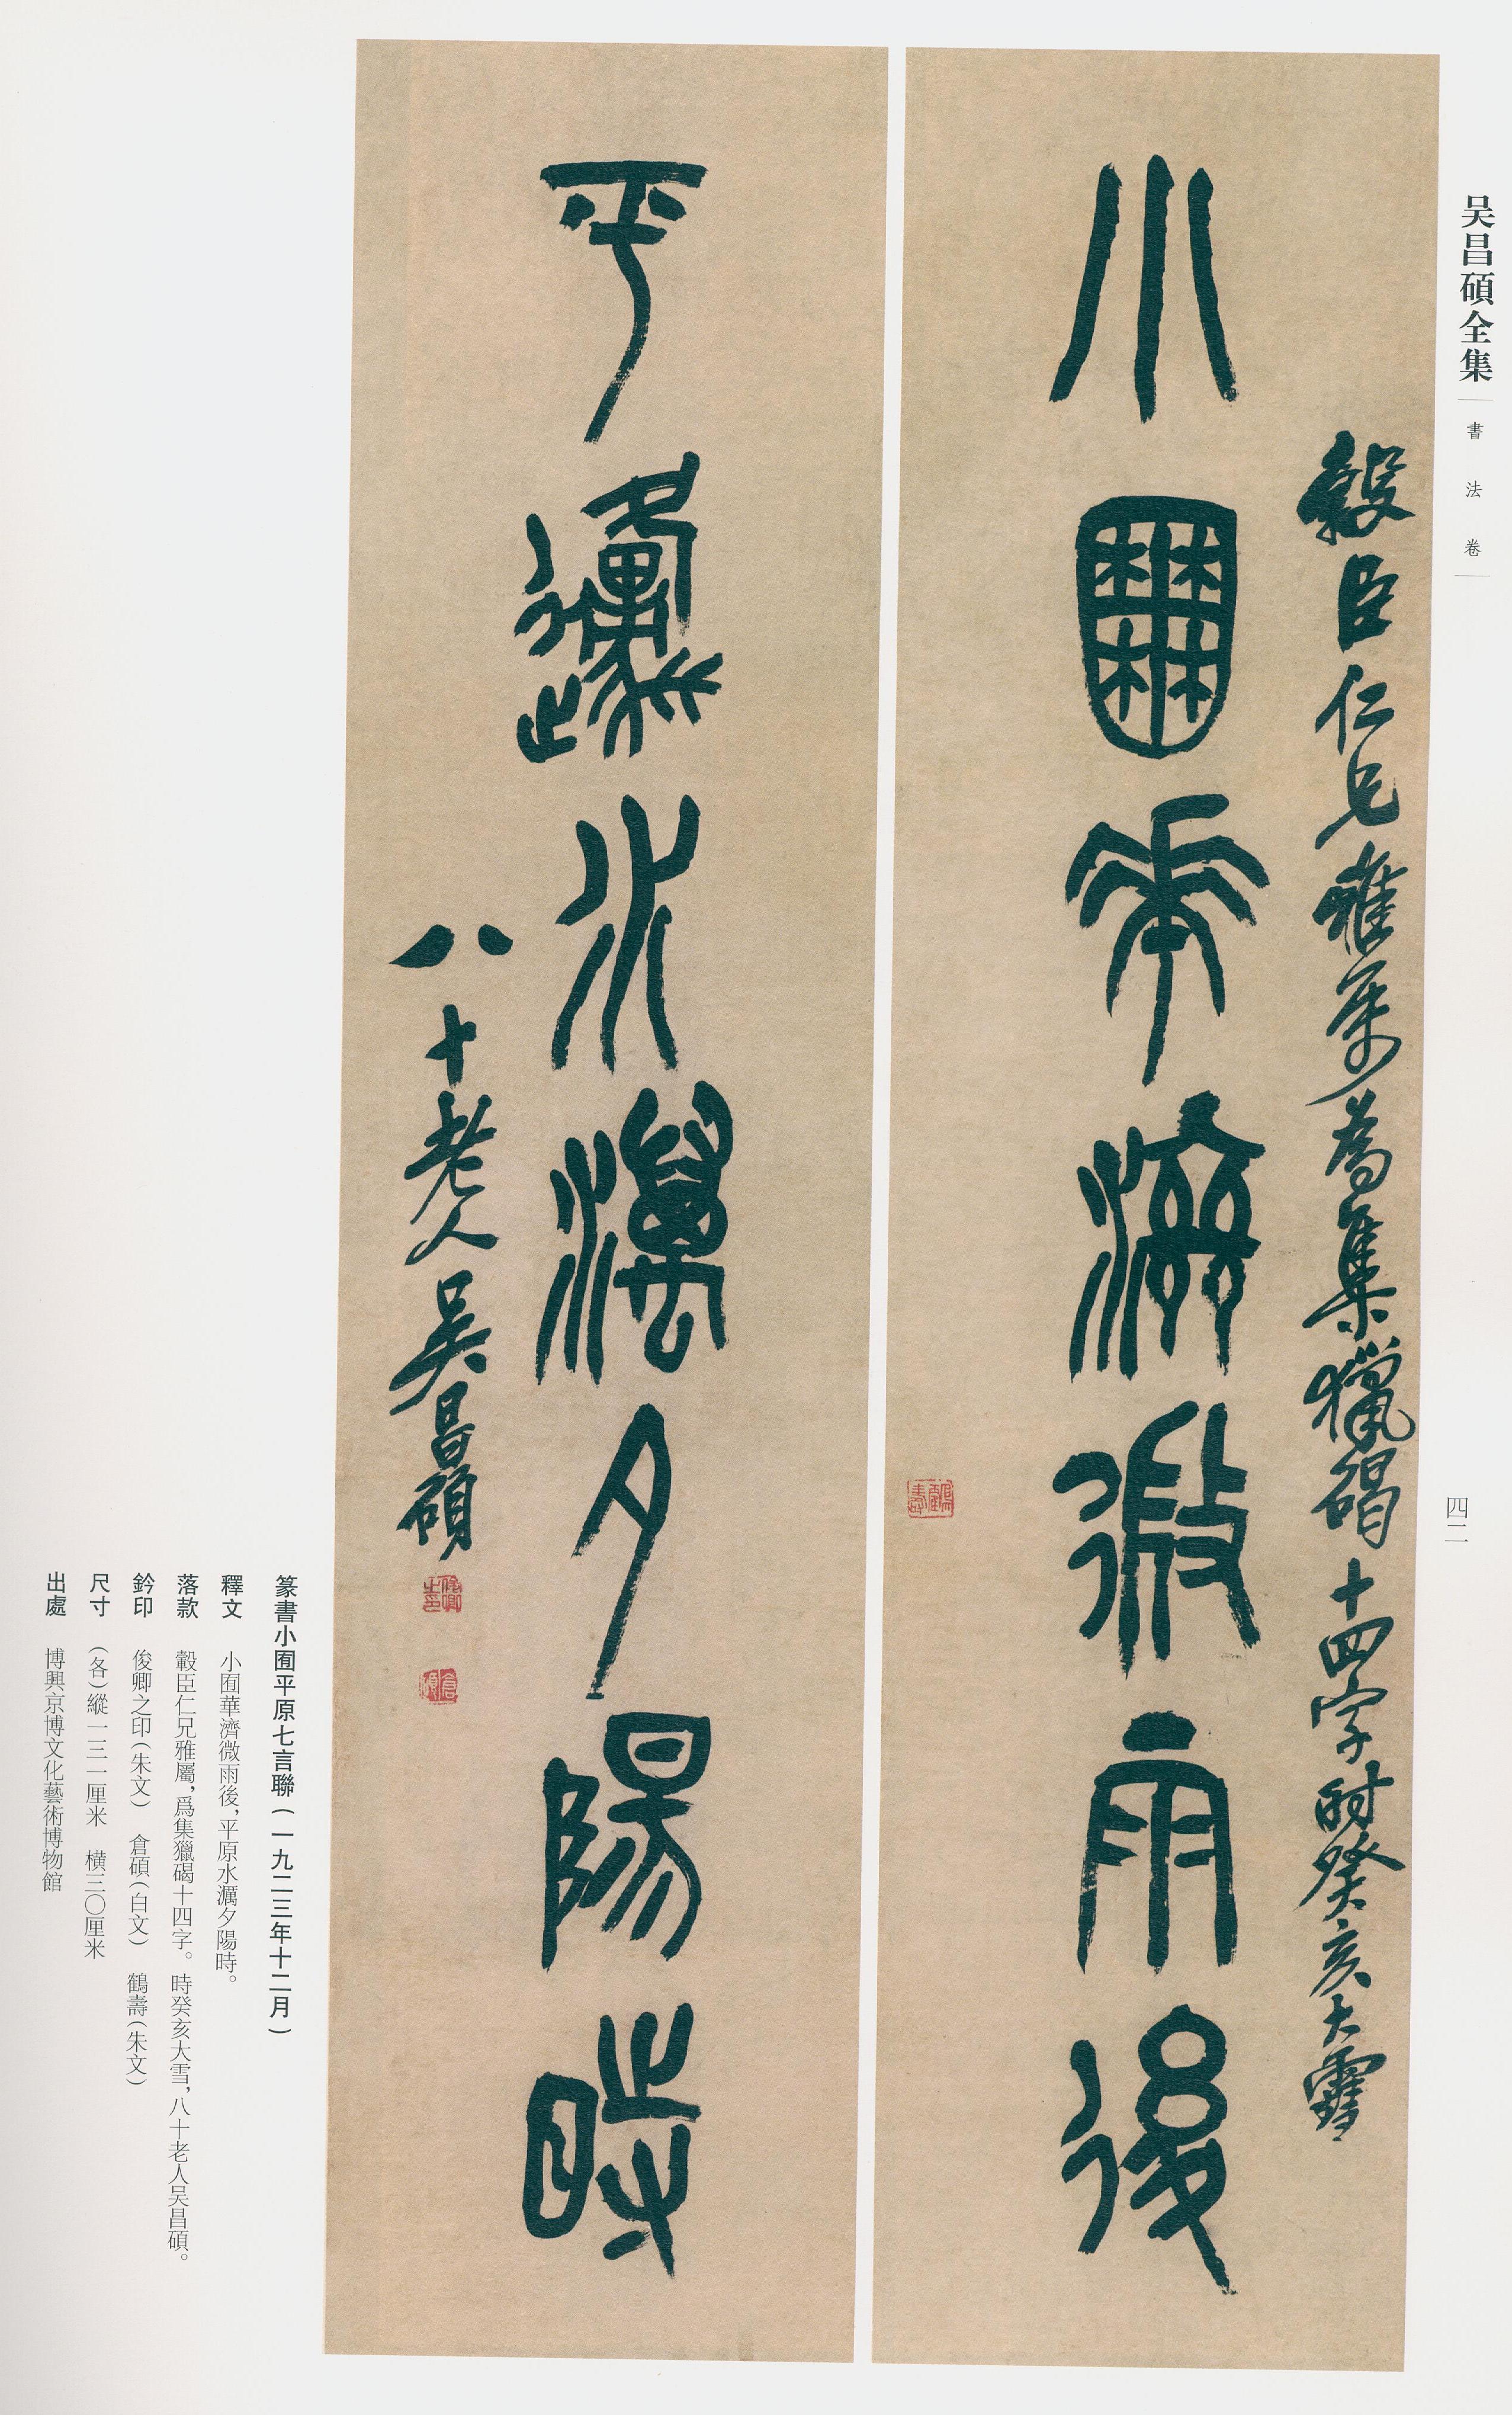 吴昌碩全集
書法卷
四二
穀臣仁兄雅屬爲集獵碣十四字時癸亥大雪
小囿華濟微雨後
鶴壽
平原水瀰夕陽時
八十老人吴昌碩
俊卿之印
倉碩
篆書小囿平原七言聯(一九二三年十二月)
釋文 小囿華濟微雨後,平原水瀰夕陽時。
落款 穀臣仁兄雅屬,爲集獵碣十四字。時癸亥大雪,八十老人吴昌碩。
鈐印 俊卿之印(朱文) 倉碩(白文) 鶴壽(朱文)
尺寸 (各)縱一三一厘米 横三〇厘米
出處 博興京博文化藝術博物館